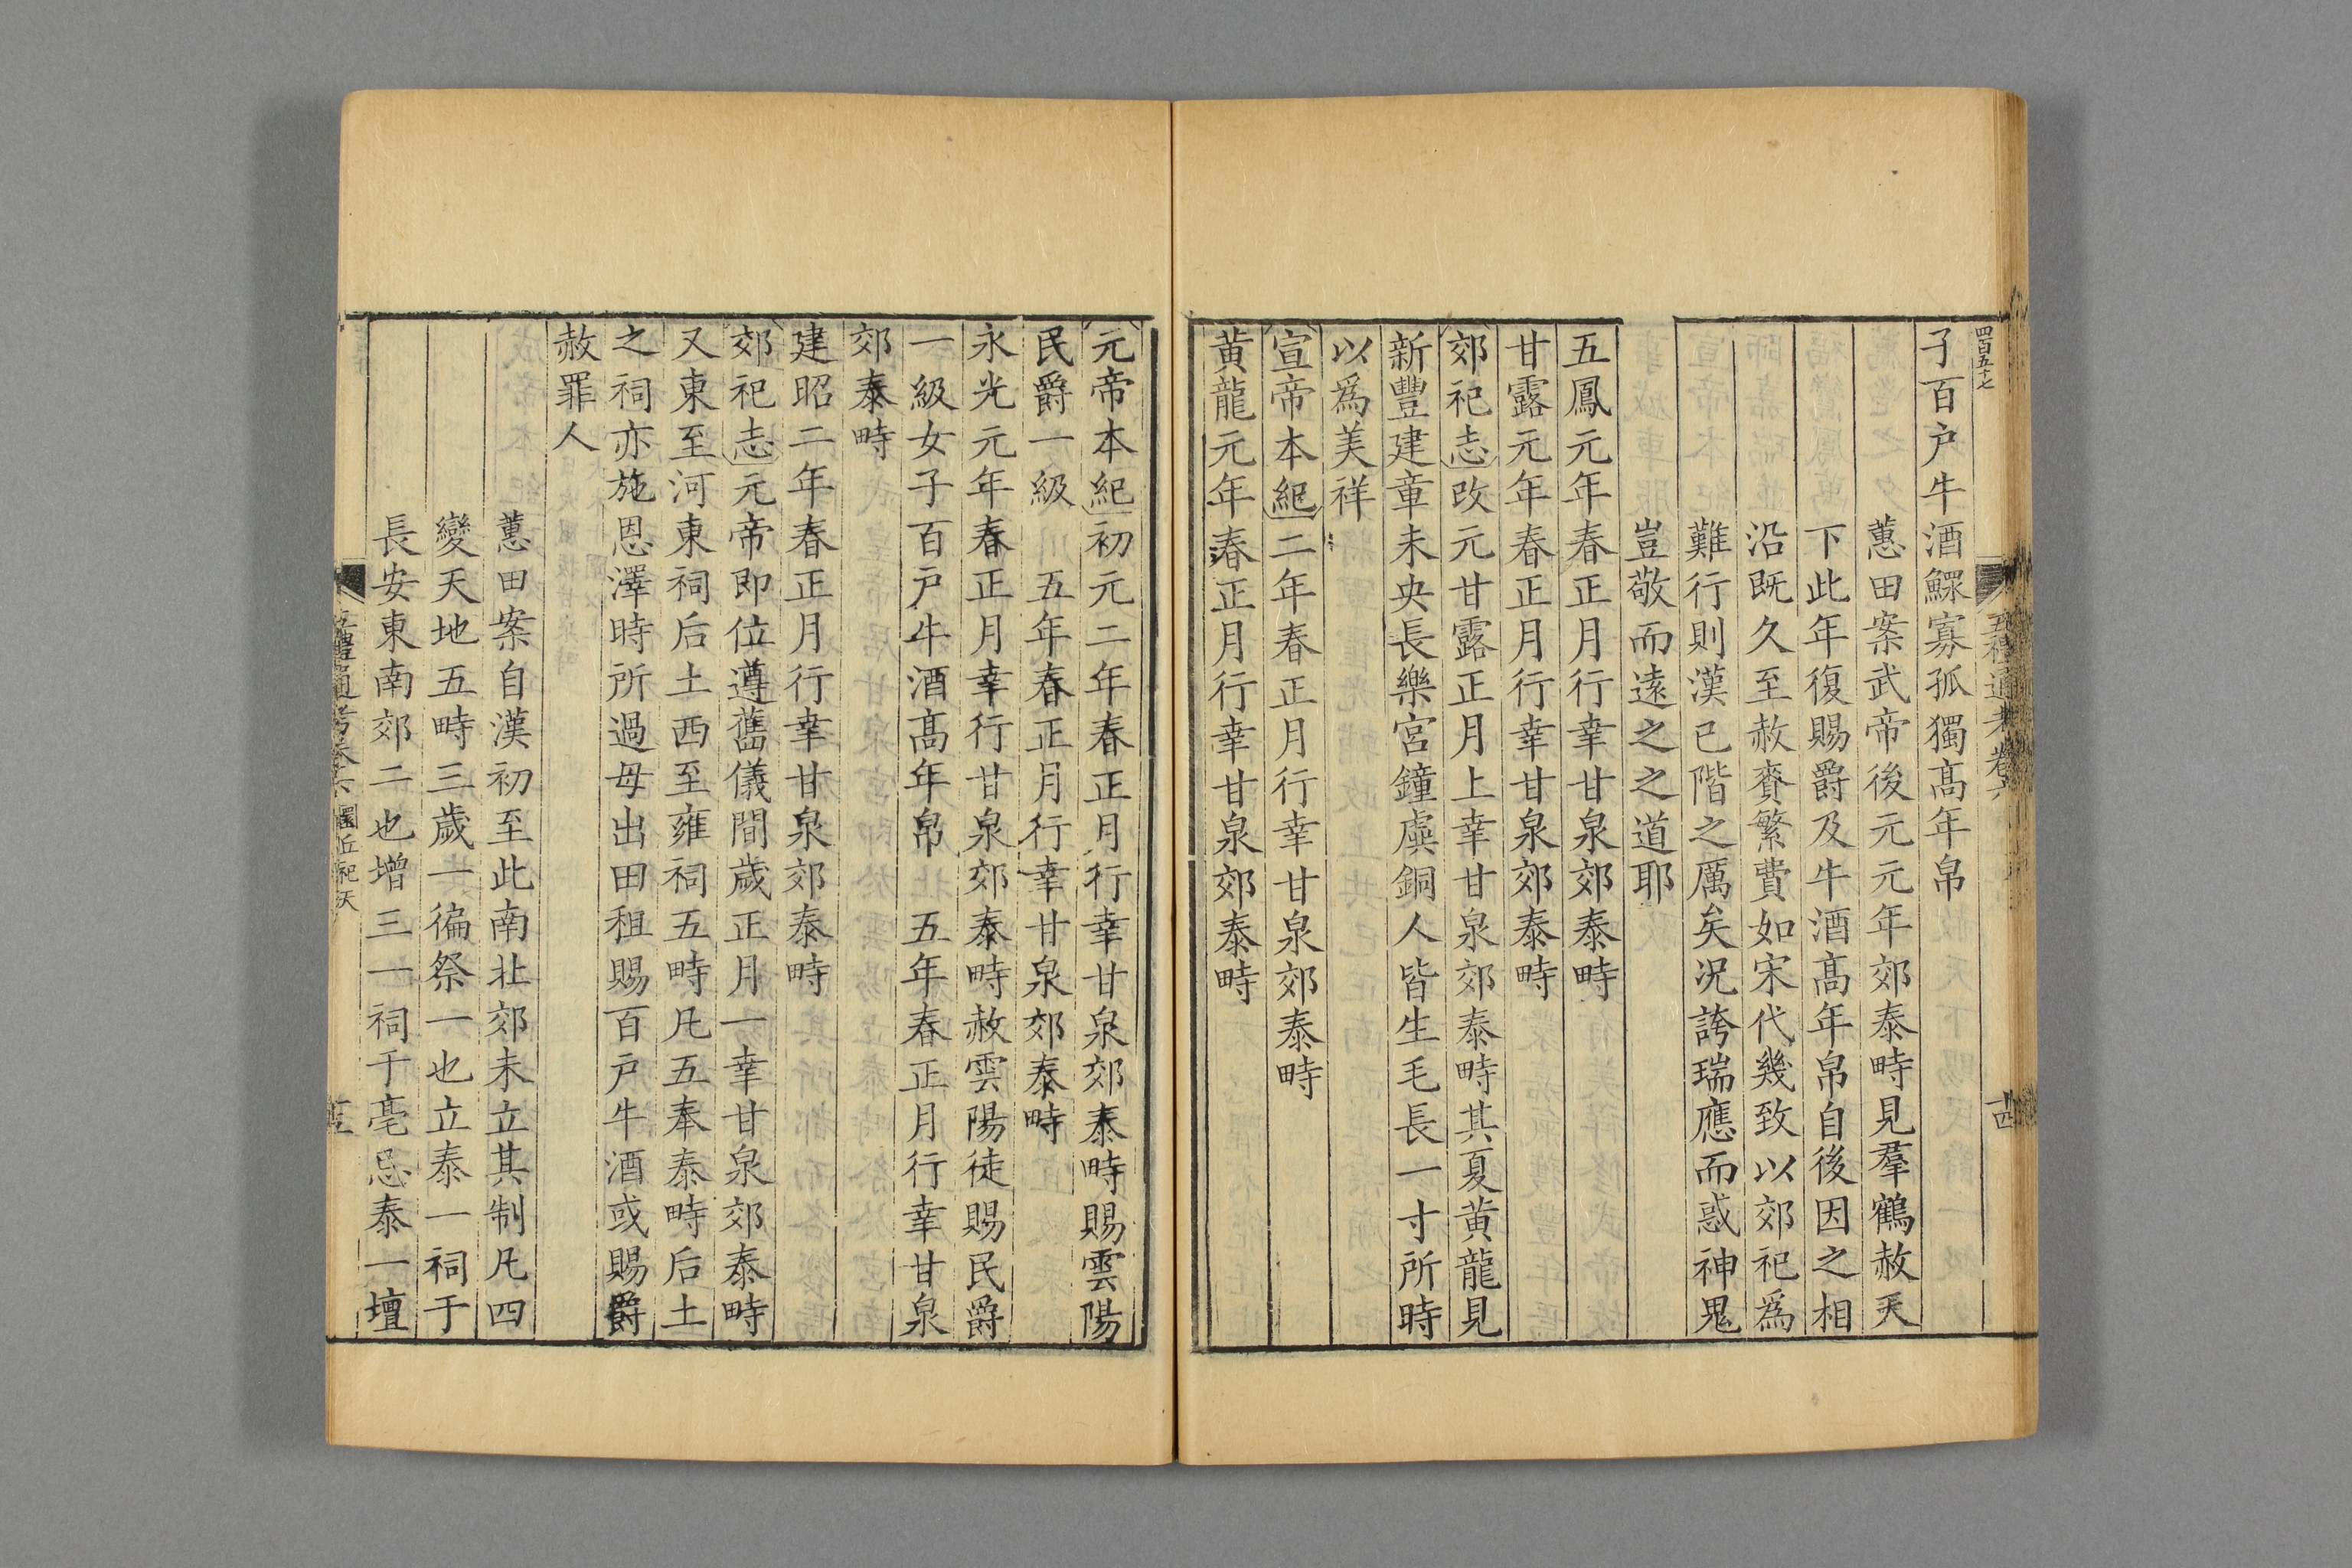 四百五十七
五禮通考卷六
十四
子百户牛酒鰥寡孤獨髙年帛
蕙田案武帝後元元年郊泰畤見羣鶴赦天
下此年復賜爵及牛酒髙年帛自後因之相
沿既久至赦賚繁費如宋代幾致以郊祀爲
難行則漢已階之厲矣況誇瑞應而惑神鬼
豈敬而遠之之道耶
五鳳元年春正月行幸甘泉郊泰畤
甘露元年春正月行幸甘泉郊泰畤
郊祀志改元甘露正月上幸甘泉郊泰畤其夏黄龍見
新豐建章未央長樂宮鐘虡銅人皆生毛長一寸所時
以爲美祥
宣帝本紀二年春正月行幸甘泉郊泰畤
黄龍元年春正月行幸甘泉郊泰畤
元帝本紀初元二年春正月行幸甘泉郊泰畤賜雲陽
民爵一級　五年春正月行幸甘泉郊泰畤
永光元年春正月幸行甘泉郊泰畤赦雲陽徒賜民爵
一級女子百户牛酒髙年帛　五年春正月行幸甘泉
郊泰畤
建昭二年春正月行幸甘泉郊泰畤
郊祀志元帝即位遵舊儀間歲正月一幸甘泉郊泰畤
又東至河東祠后土西至雍祠五畤凡五奉泰畤后土
之祠亦施恩澤時所過毋出田租賜百户牛酒或賜爵
赦罪人
蕙田案自漢初至此南北郊未立其制凡四
變天地五畤三歲一徧祭一也立泰一祠于
長安東南郊二也增三一祠于亳忌泰一壇
五禮通考卷六 圜丘祀天
十五